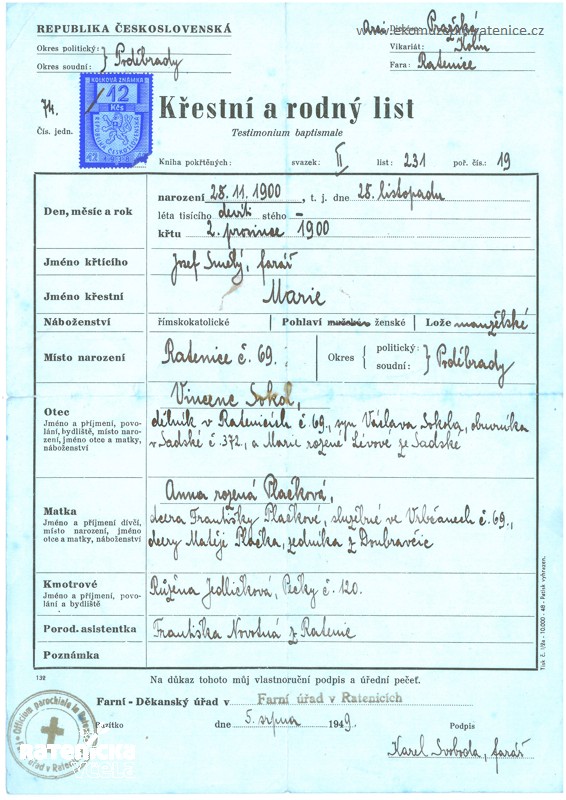 www.ekomuzeum-ratenice.cz
REPUBLIKA ČESKOSLOVENSKÁ
Okres politický:
Okres soudní: } Poděbrady
Diecése: Pražská
Vikariát: Kolín
Fara: Ratenice
74.
Čís. jedn.
KOLKOVÁ ZNÁMKA
12
Kčs
REPUBLIKA ČESKOSLOVENSKÁ
Křestní a rodný list
Testimonium baptismale
Kniha pokřtěných: svazek: II list: 231 poř. čís.: 19
Den, měsíc a rok
narození 28. 11. 1900, t. j. dne 28. listopadu
léta tisícího devíti stého –
křtu 2. prosince 1900
Jméno křtícího Josef Smělý, farář
Jméno křestní Marie
Náboženství římskokatolické Pohlaví mužské ženské Lože manželské
Místo narození Ratenice č. 69. Okres { politický: soudní: } Poděbrady
Otec
Jméno a příjmení, povo-
lání, bydliště, místo naro-
zení, jméno otce a matky,
náboženství
Vincenc Sokol,
dělník v Ratenicích č. 69., syn Václava Sokola, obuvníka
v Sadské č. 372, a Marie rozené Lívové ze Sadské
Matka
Jméno a příjmení dívčí,
místo narození, jméno
otce a matky, náboženství
Anna rozená Plačková,
dcera Františky Plačkové, služebné ve Vrbčanech č. 69.,
dcery Matěje Plačka, zedníka z Doubravčic
Kmotrové
Jméno a příjmení, povo-
lání a bydliště
Růžena Jedličková, Pečky č. 120.
Porod. asistentka Františka Novotná z Ratenic
Poznámka
Tisk č. 1/9a - 10.000 - 48 - Patisk vyhrazen.
132
Na důkaz tohoto můj vlastnoruční podpis a úřední pečeť.
Farní - Děkanský úřad v Farní úřad v Ratenicích
Razítko dne 5. srpna 1949.
Podpis
Karel Svoboda, farář
Officium parochiale in Ratenice
úřad v Ratenicích
RATENICKA